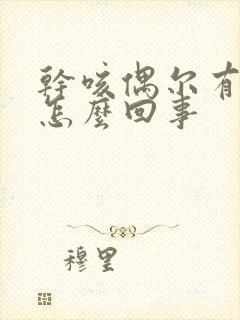 幹咳偶尔有
怎麼回事
穆里